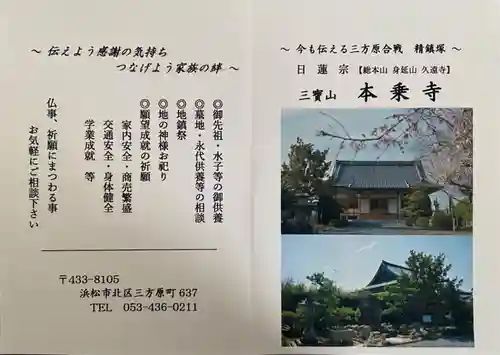 ～ 今も伝える三方原合戦　精鎮塚 ～
日　蓮　宗【総本山 身延山 久遠寺】
三寶山 本 乗 寺
～ 伝えよう感謝の気持ち
つなげよう家族の絆 ～
◎御先祖・水子等の御供養
◎墓地・永代供養等の相談
◎地鎮祭
◎地の神様お祀り
◎願望成就の祈願
家内安全・商売繁盛
交通安全・身体健全
学業成就　等
仏事、祈願にまつわる事
お気軽にご相談下さい
〒433-8105
浜松市北区三方原町 637
TEL　053-436-0211